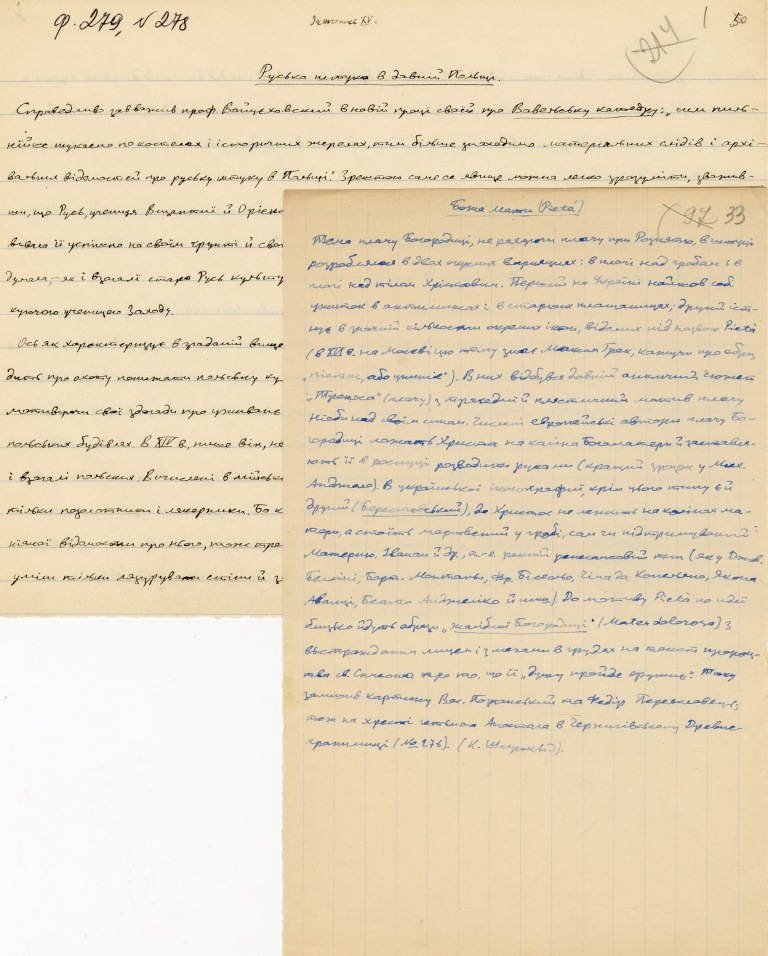 ф. 279, № 278
314
50
Руська штука в давній Польщі.
Справедливо завважив проф. Войцєховский в новій праці своєй про Вавельську катедру: „чим пиль-
нійше шукаємо по костелах і історичних жерелах, тим більше знаходимо матеріяльних слідів і архі-
вальних відомостей про руську штуку в Польщі." Зрештою саме се явище можна легко зрозуміти, зважив-
ши, що Русь, учениця Візантії й Орієн
вивела її успішно на своїм ґрунті й сво
думала, – як і взагалі стара Русь культу
куючого ученицею Заходу.
Ось як характеризує в згаданій више
дить про охоту понижати польську ку
мотивуючи свої здогади про уживанє
польських будівлях. В XIV в., пише він, не
і взагалі польских. Вичислені в мійськ
тільки позолотники і лякерники. Бо к
ніякої відомости про нього, також тре
уміли тільки лязурувати стіни й з
Божа Мати (Pietà)
97 33
Тема плачу Богородиці, не рахуючи плачу при Розпятю, в штуці
розроблялася в двох окремих варіяціях: в плачі над гробом і в
плачі над тілом Христовим. Перший на Україні найшов собі
ужиток в антиминсах і в старших плащаницях; другий іст-
нує в значній кількости окремих ікон, відомих під назвою Pietà
(в XVI в. на Москві цю тему знає Максим Грек, кажучи про образ
„пієтас, або униніє"). В них відбувся давній античний сюжет
„Треноса" (плачу) з трагедій і плястичний мотив плачу
Ніоби над своїм сином. Чисельні европейські автори плачу Бо-
городиці ложать Христа на коліна Богоматери й заставля-
ють її в розпуці розводити руками (кращий зразок у Мих.
Анджело). В української іконографії, крім цього типу є й
другий (Берестовський), де Христос не лежить на колінах ма-
тери, а стоїть мертвений у гробі, сам чи підтримуваний
Материю, Іваном й др., т.-є. ранній ренесансовий тип (як у Джов.
Беліні, Барт. Монтаньї, Фр. Бісольо, Чіма да Конельяно, Якопа
Аванці, Беато Анджеліко й инш.). До мотиву Pietà по ідеї
близько йдуть образи „жалібної Богородиці" (Mater dolorosa) з
вистражданим лицем і з мечами в грудях на текст пророц-
тва св. Симеона про то, що її „душу пройде оружиє". Таку
залишив картину Вас. Познанський та Федір Переяславець,
теж на хресті гетьмана Апостола в Чернигівському Древле-
хранилищі (№ 276). (К. Широцький).